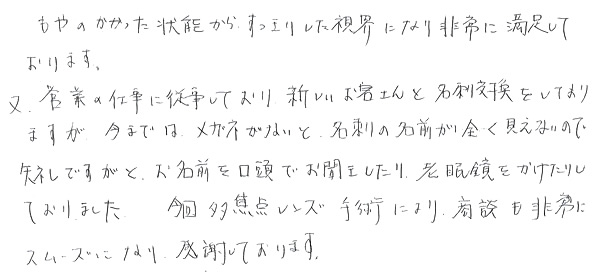 もやのかかった状態から、すっきりした視界になり非常に満足して
おります。
又、営業の仕事に従事しており、新しいお客さんと名刺交換をしており
ますが、今までは、メガネがないと、名刺の名前が全く見えないので
失礼ですがと、お名前を口頭でお聞きしたり、老眼鏡をかけたりし
ておりました。 今回 多焦点レンズ手術により、商談も非常に
スムーズになり、感謝しております。